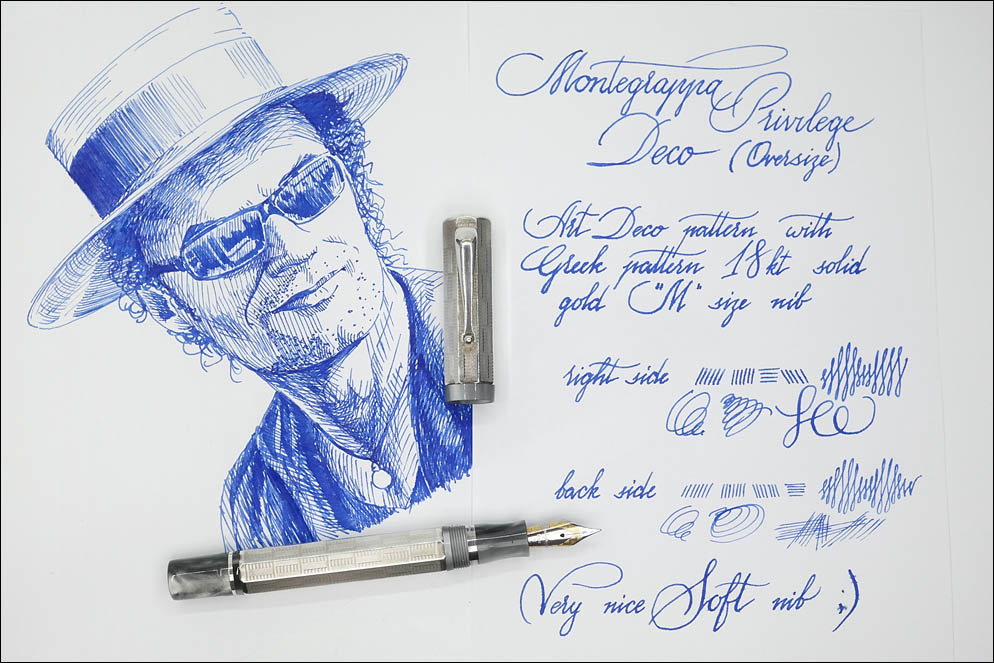 Montegrappa
Privilege
Deco (Oversize)
Art-Deco pattern with
Greek pattern 18kt solid
gold "M" size nib
right side
back side
Very nice Soft nib :)